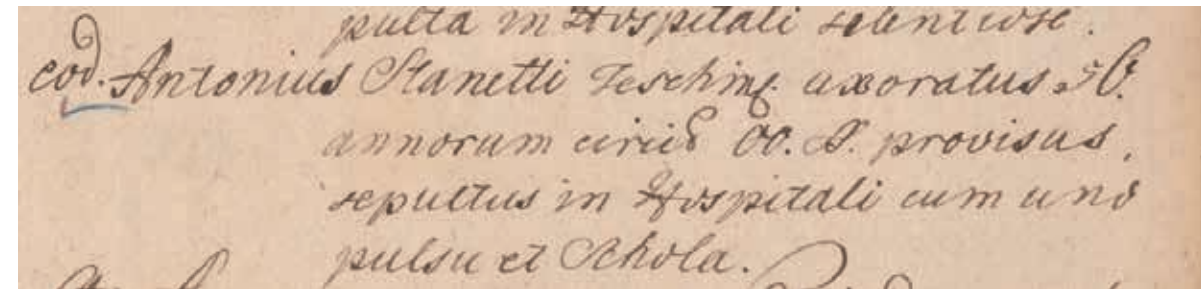 pulta in Hospitali silentiose.
eod. Antonius Stanetti Teschins. uxoratus 50.
annorum circit. oo. S. provisus,
sepultus in Hospitali cum uno
pulsu et Schola.